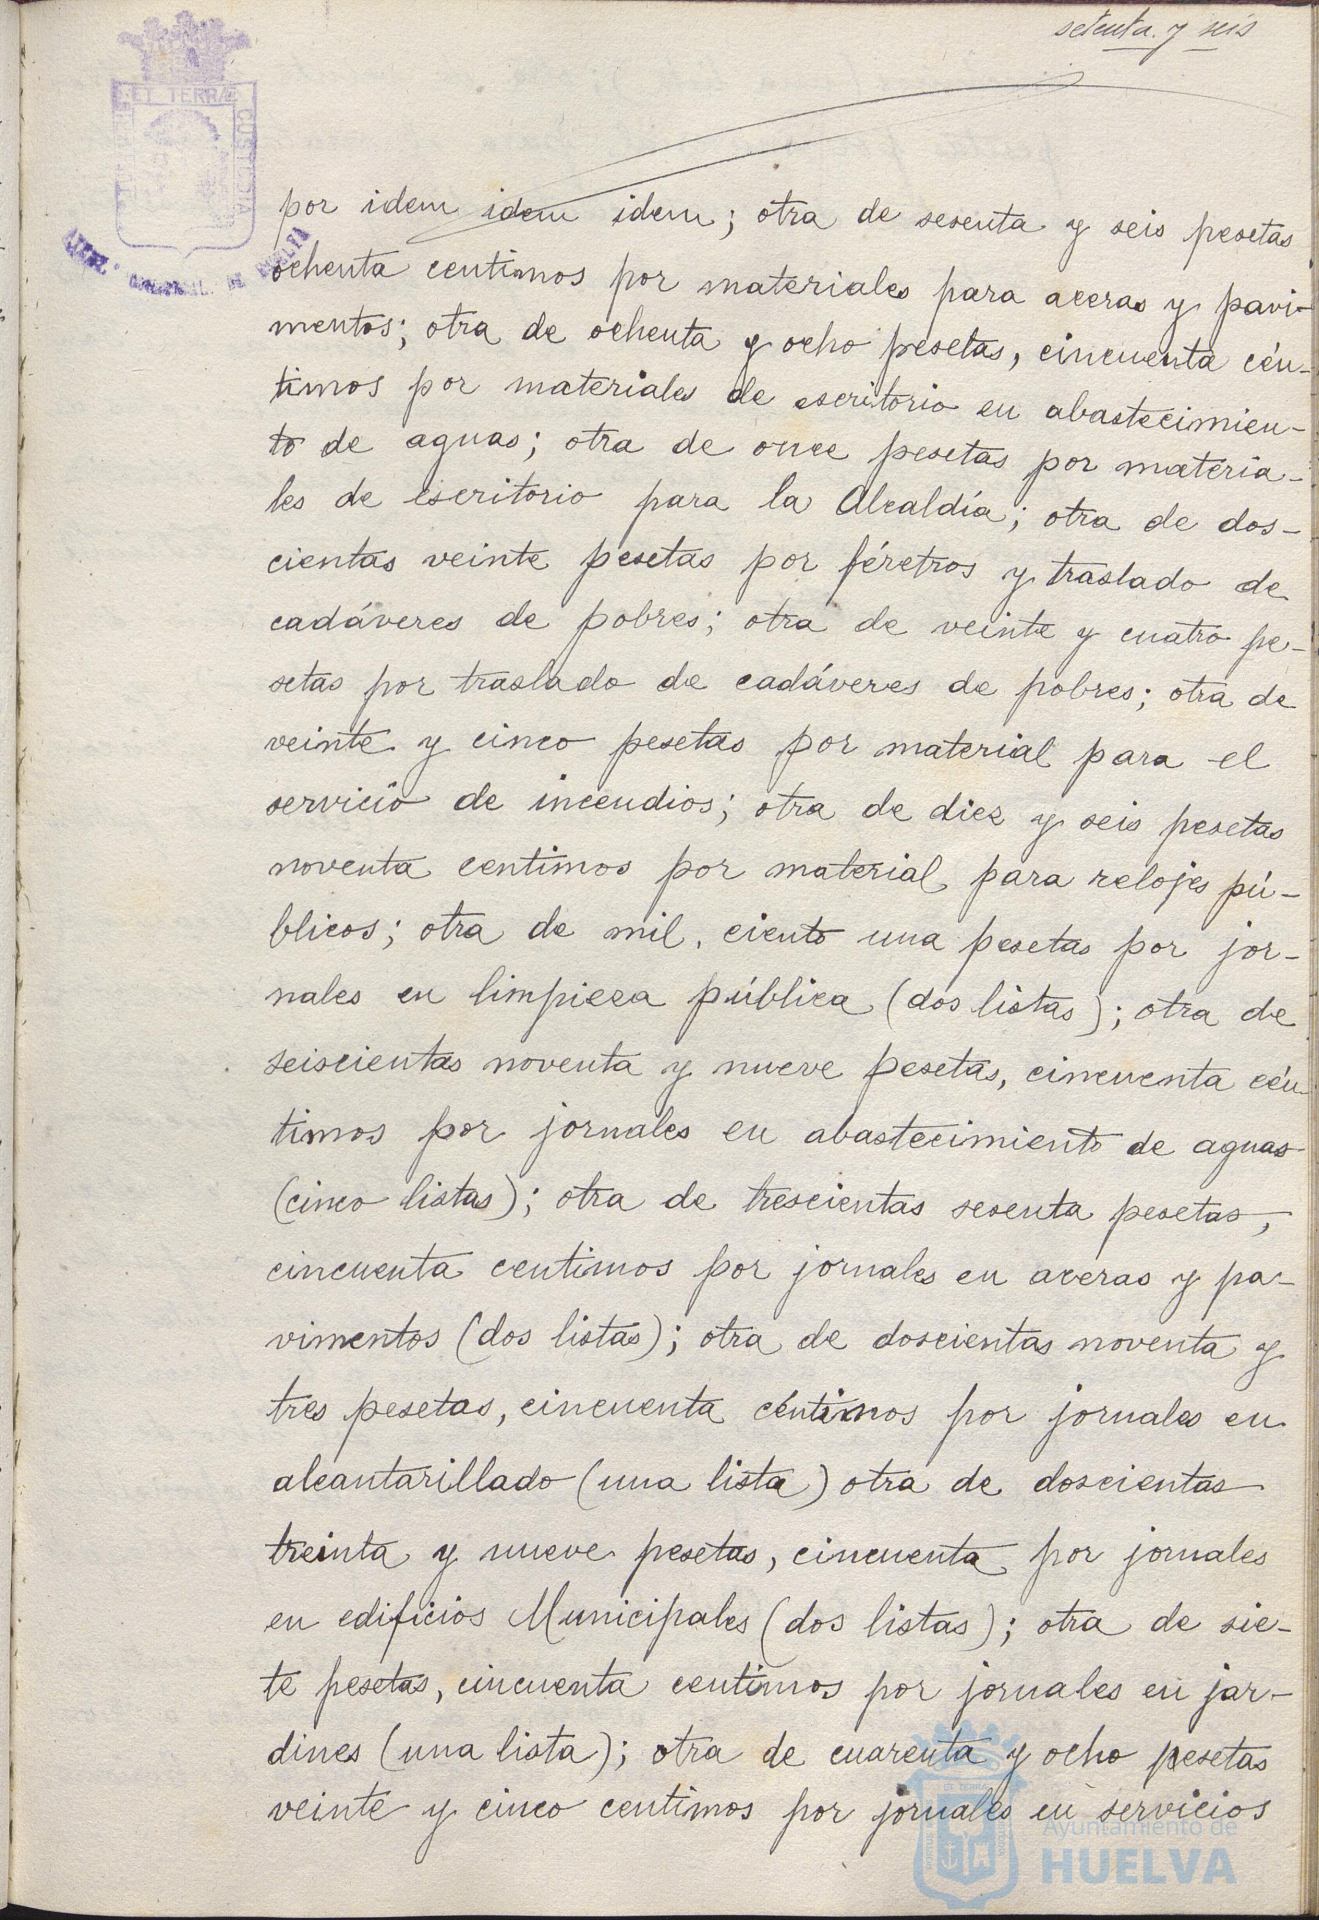 setenta y seis
ET TERRAE
CUSTODIA
por idem idem idem; otra de sesenta y seis pesetas
ochenta centimos por materiales para aceras y pavi-
mentos; otra de ochenta y ocho pesetas, cincuenta cén-
timos por materiales de escritorio en abastecimien-
to de aguas; otra de once pesetas por materia-
les de escritorio para la Alcaldía; otra de dos-
cientas veinte pesetas por féretros y traslado de
cadáveres de pobres; otra de veinte y cuatro pe-
setas por traslado de cadáveres de pobres; otra de
veinte y cinco pesetas por material para el
servicio de incendios; otra de diez y seis pesetas
noventa centimos por material para relojes pú-
blicos; otra de mil, ciento una pesetas por jor-
nales en limpieza pública (dos listas); otra de
seiscientas noventa y nueve pesetas, cincuenta cén-
timos por jornales en abastecimiento de aguas
(cinco listas); otra de trescientas sesenta pesetas,
cincuenta centimos por jornales en aceras y pa-
vimentos (dos listas); otra de doscientas noventa y
tres pesetas, cincuenta céntimos por jornales en
alcantarillado (una lista) otra de doscientas
treinta y nueve pesetas, cincuenta por jornales
en edificios Municipales (dos listas); otra de sie-
te pesetas, cincuenta centimos por jornales en jar-
dines (una lista); otra de cuarenta y ocho pesetas
veinte y cinco centimos por jornales en servicios
Ayuntamiento de
HUELVA